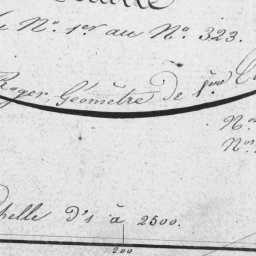 N.º 1.er au N.º 323.
Roger Géomètre de 1.ère
N.os
N.os
chelle d'1 à 2500.
200